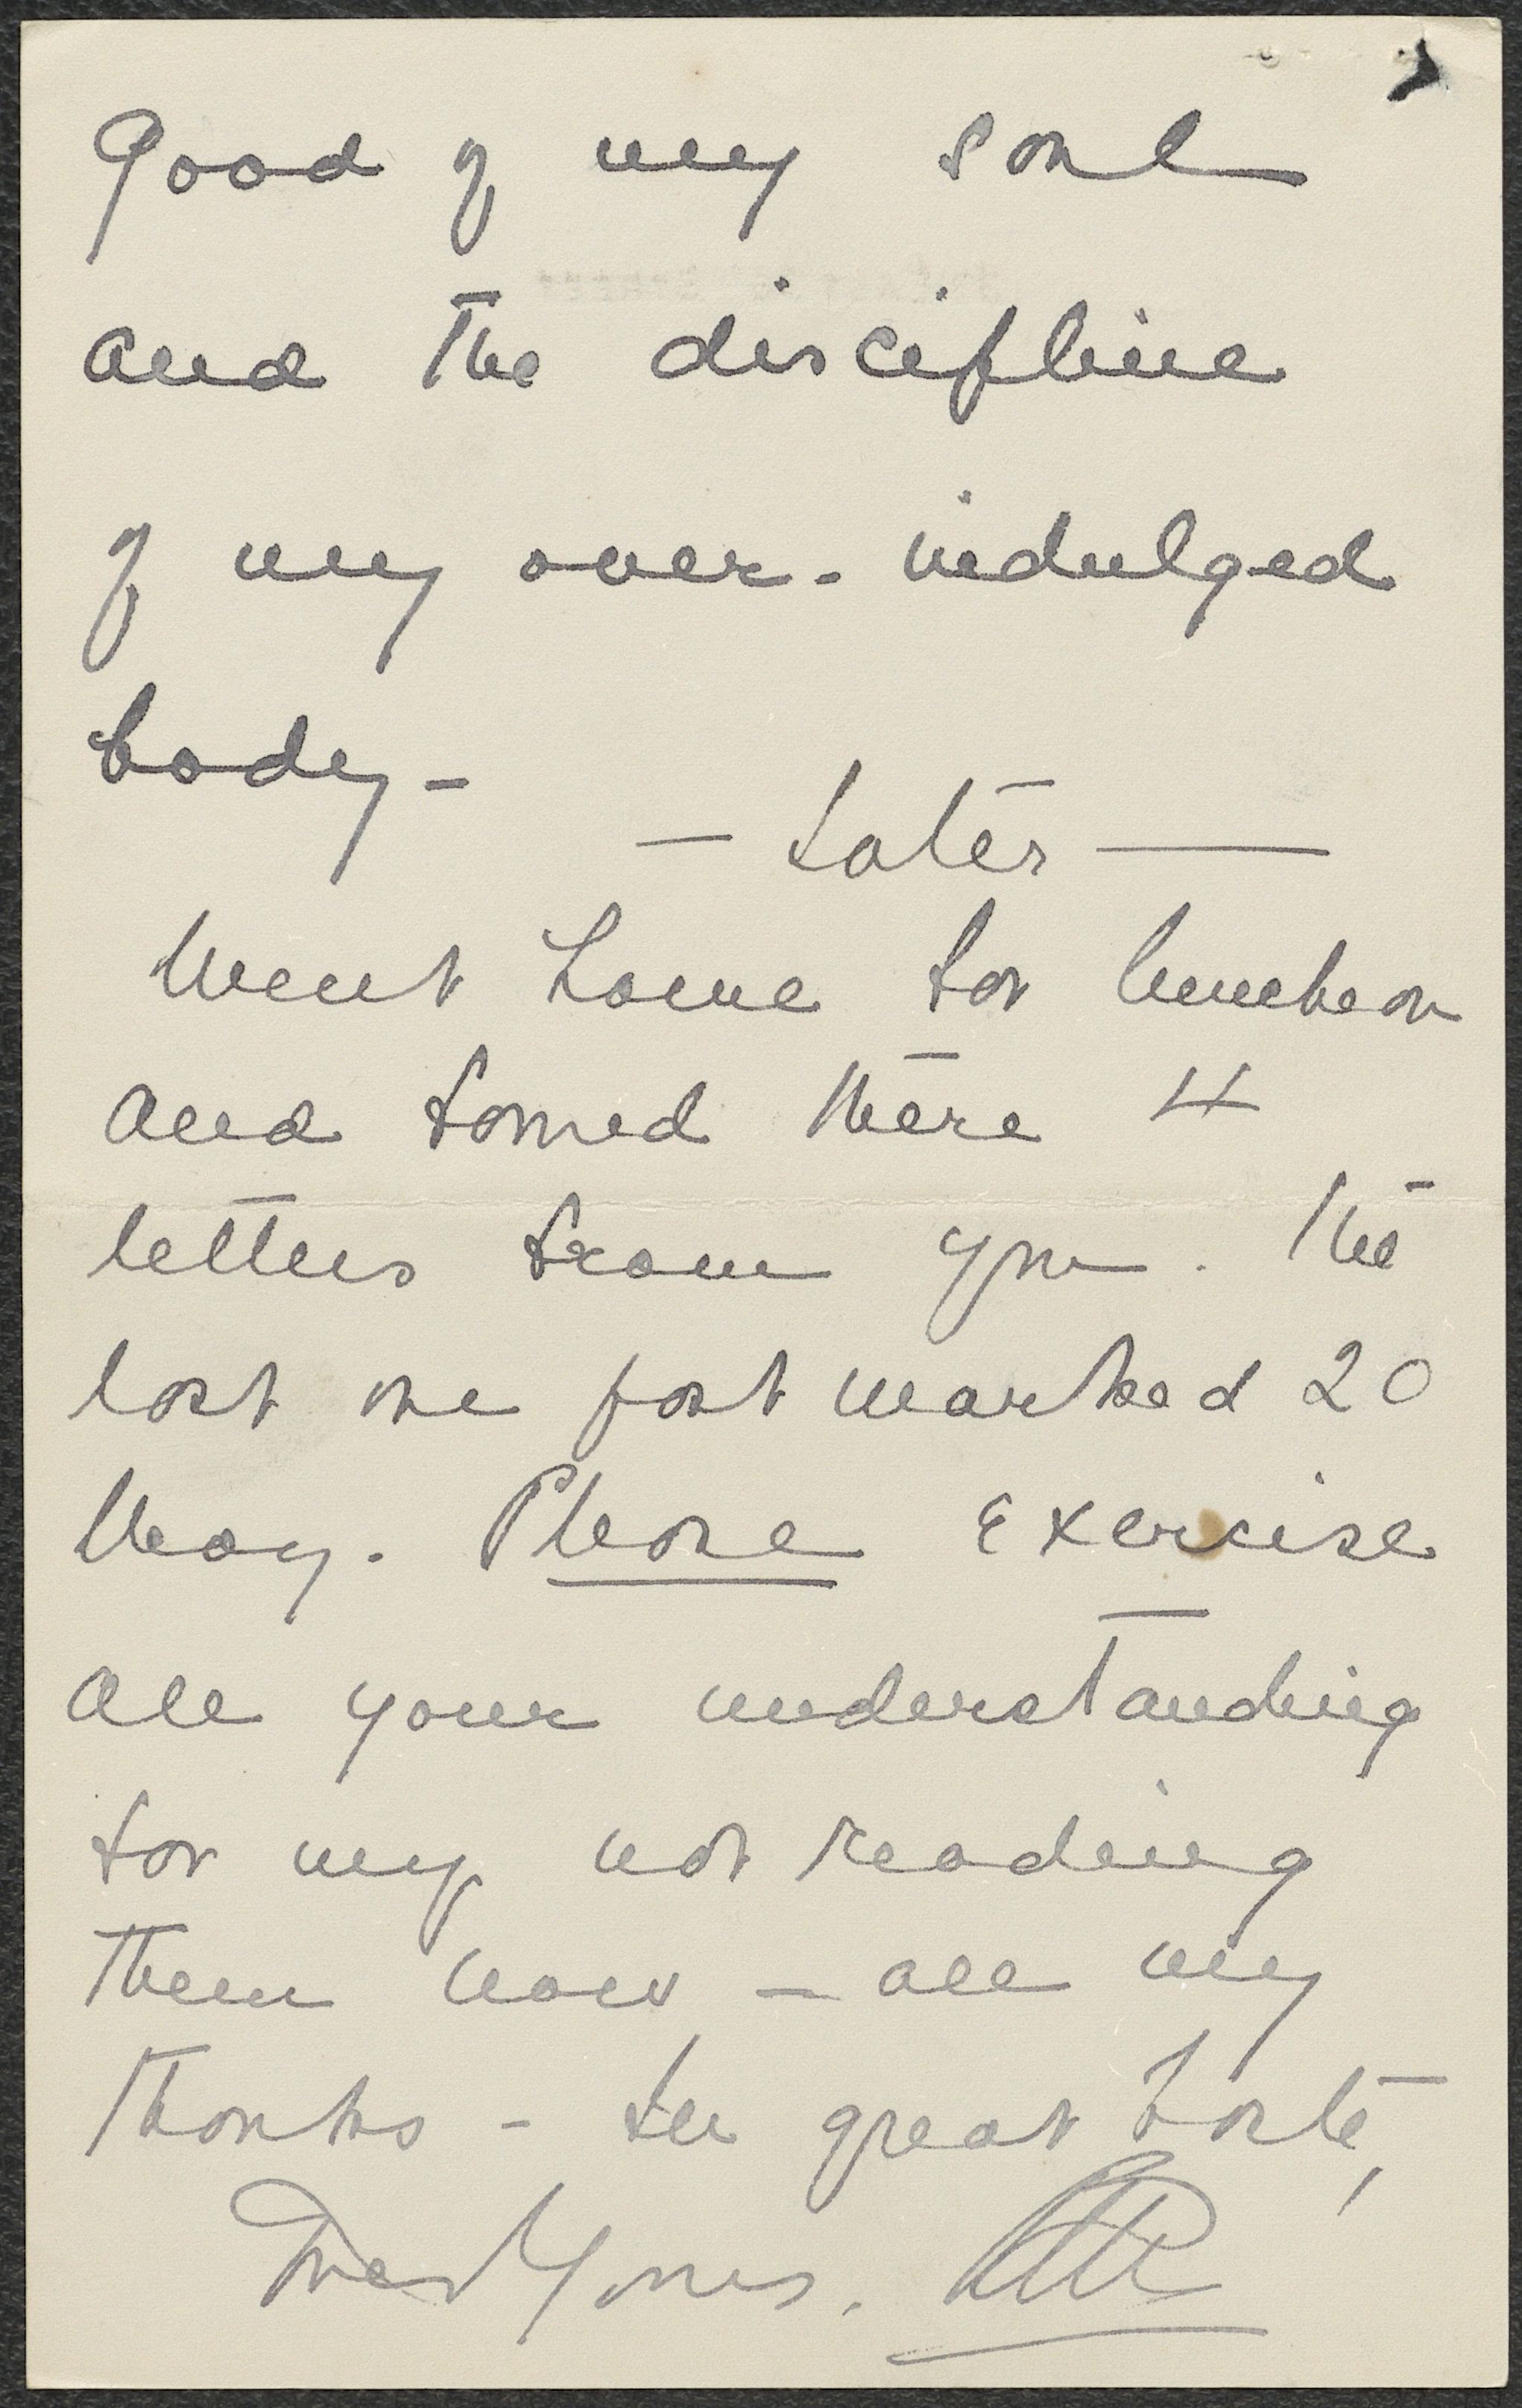 good of my soul
and the discipline
of my over-indulged
body -
- Later -
Went home for luncheon
and found there 4
letters from you. The
last one post marked 20
May. Please exercise
all your understanding
for my not reading
them now - all my
thanks - In great haste,
Ever Yours.